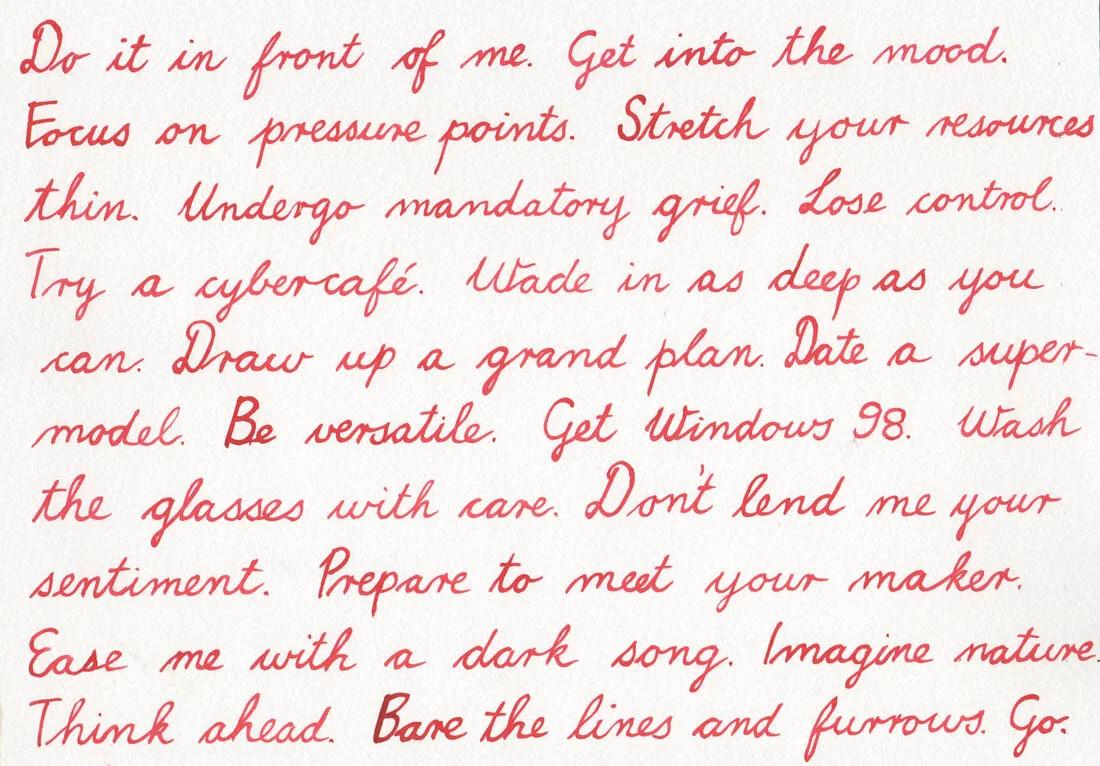 Do it in front of me. Get into the mood.
Focus on pressure points. Stretch your resources
thin. Undergo mandatory grief. Lose control.
Try a cybercafé. Wade in as deep as you
can. Draw up a grand plan. Date a super-
model. Be versatile. Get Windows 98. Wash
the glasses with care. Don't lend me your
sentiment. Prepare to meet your maker.
Ease me with a dark song. Imagine nature.
Think ahead. Bare the lines and furrows. Go.